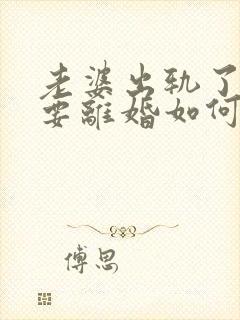 老婆出轨了
要離婚如何
傅思